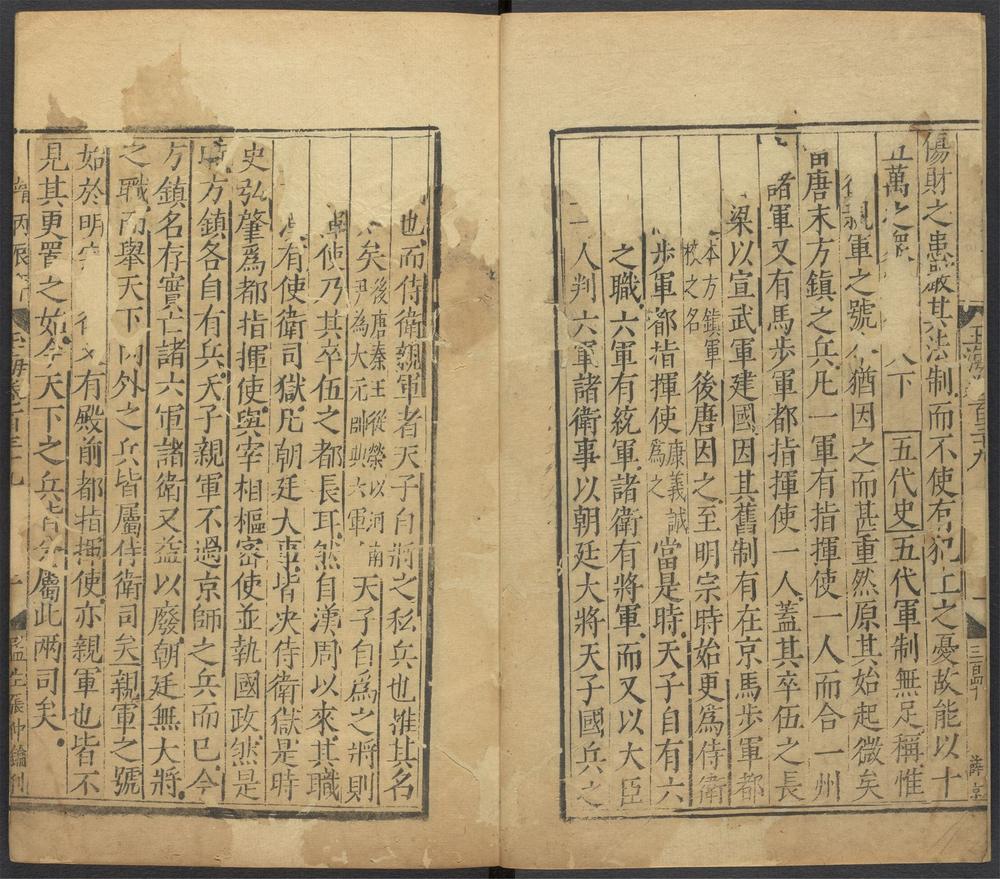 傷財之患蔽其法制而不使有犯上之憂故能以十
萬之衆
下 五代史五代軍制無足稱惟
親軍之號 猶因之而甚重然原其始起微矣
唐末方鎮之兵凡一軍有指揮使一人而合一州
諸軍又有馬步軍都指揮使一人蓋其卒伍之長
梁以宣武軍建國因其舊制有在京馬步軍都
本方鎮軍
校之名
後唐因之至明宗時始更爲侍衛
步軍都指揮使
康義誠
爲之
當是時天子自有六
之職六軍有統軍諸衛有將軍而又以大臣
一人判六軍諸衛事以朝廷大將天子國兵之
也而侍衛親軍者天子自將之私兵也推其名
矣
後唐秦王從榮以河南
尹為大元帥典六軍
天子自爲之將則
使乃其卒伍之都長耳然自漢周以來其職
有使衛司獄凡朝廷大事皆决侍衛獄是時
史弘肇爲都指揮使與宰相樞密使並執國政然是
時方鎮各自有兵天子親軍不過京師之兵而已今
方鎮名存實亡諸六軍諸衛又益以廢朝廷無大將
之職而舉天下内外之兵皆屬侍衛司矣親軍之號
始於明宗 後又有殿前都指揮使亦親軍也皆不
見其更置之始今天下之兵皆分屬此兩司矣
玉海卷百三十九
一
三百四十
薛京
丙辰
玉海卷百三十九
監生張仲鑰刊